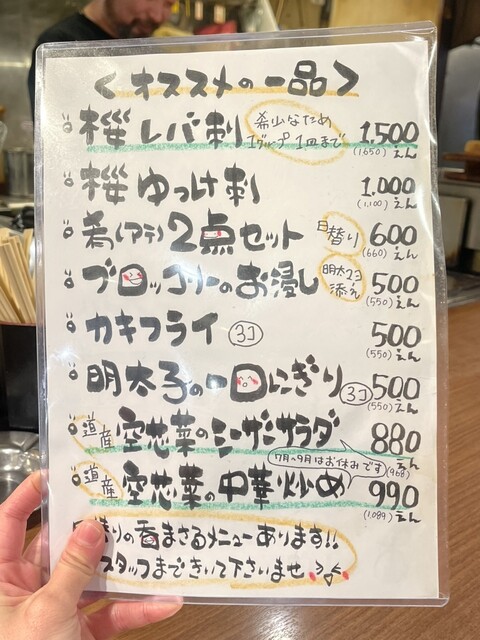 <オススメの一品>
桜レバ刺 希少なため 1グループ1皿まで 1,500 (1650)えん
桜ゆっけ刺 1,000 (1,100)えん
肴(アテ)2点セット 日替り 600 (660)えん
ブロッコリーのお浸し 明太マヨ添え 500 (550)えん
カキフライ 3コ 500 (550)えん
明太子の一口にぎり 3コ 500 (550)えん
道産 空芯菜のシーザーサラダ 880 (968)えん
7月〜9月はお休みです
道産 空芯菜の中華炒め 990 (1,089)えん
りの香まさるメニューあります!!
スタッフまできいて下さいませ